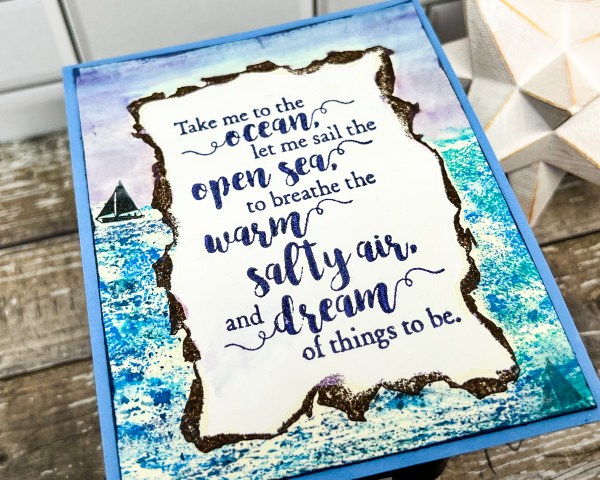 Take me to the
ocean,
let me sail the
open sea,
to breathe the
warm
salty air,
and dream
of things to be.